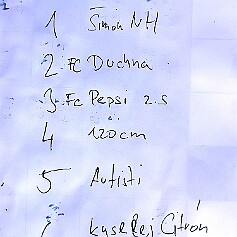 1 Šimon NH
2. FC Duchna
3. Fc Pepsi z.s
4 120cm
5 Autisti
kyselej Citrón